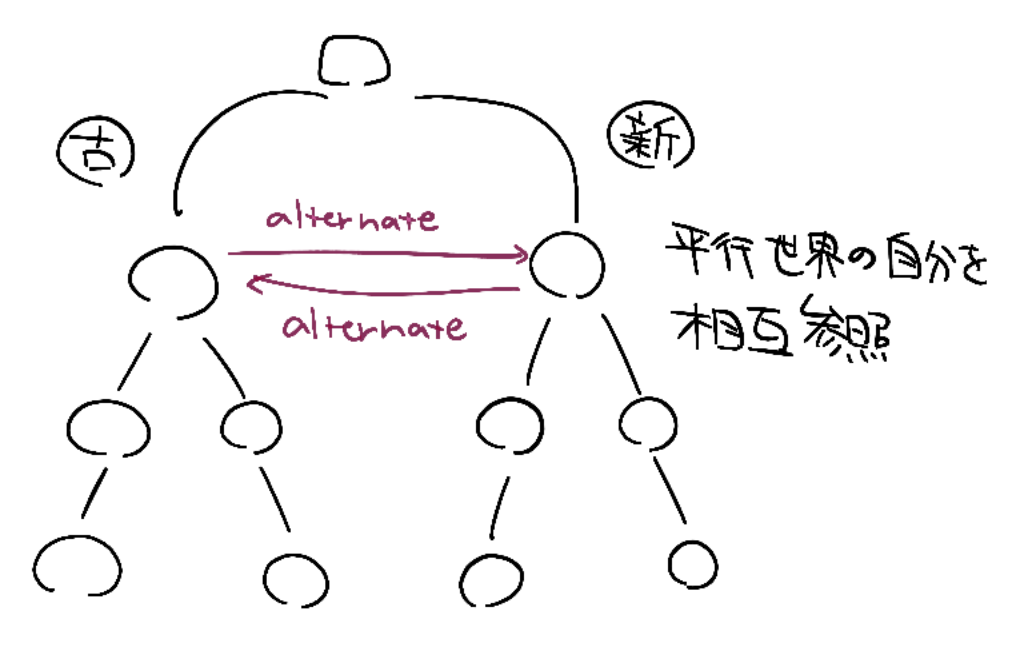 古
新
alternate
alternate
平行世界の自分を
相互参照